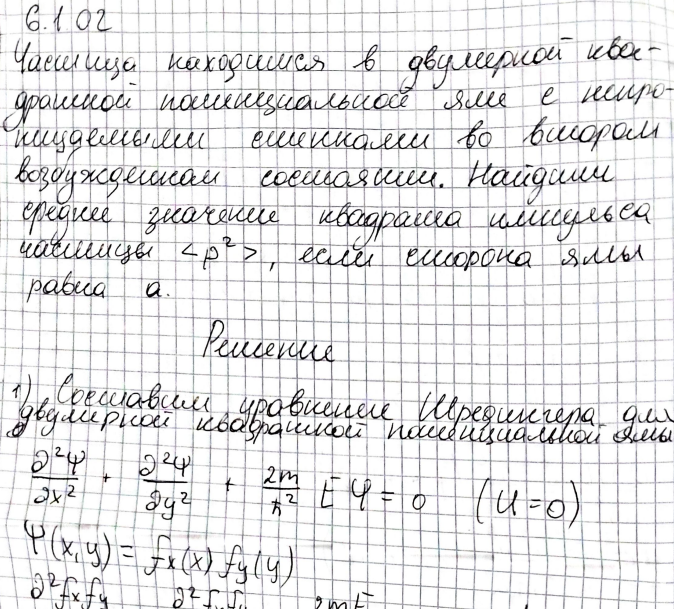 6.1 02
Частица находится в двумерной ква-
дратной потенциальной яме с непро-
ницаемыми стенками во втором
возбужденном состоянии. Найдити
среднее значение квадрата импульса
частицы <p²>, если сторона ямы
равна a.
Решение
1) Составим уравнение Шредингера для
двумерной квадратной потенциальной ямы
∂²Ψ/∂x² + ∂²Ψ/∂y² + 2m/ħ² EΨ = 0 (U=0)
Ψ(x,y) = fx(x) fy(y)
∂²fxfy ∂²fxfy 2mE